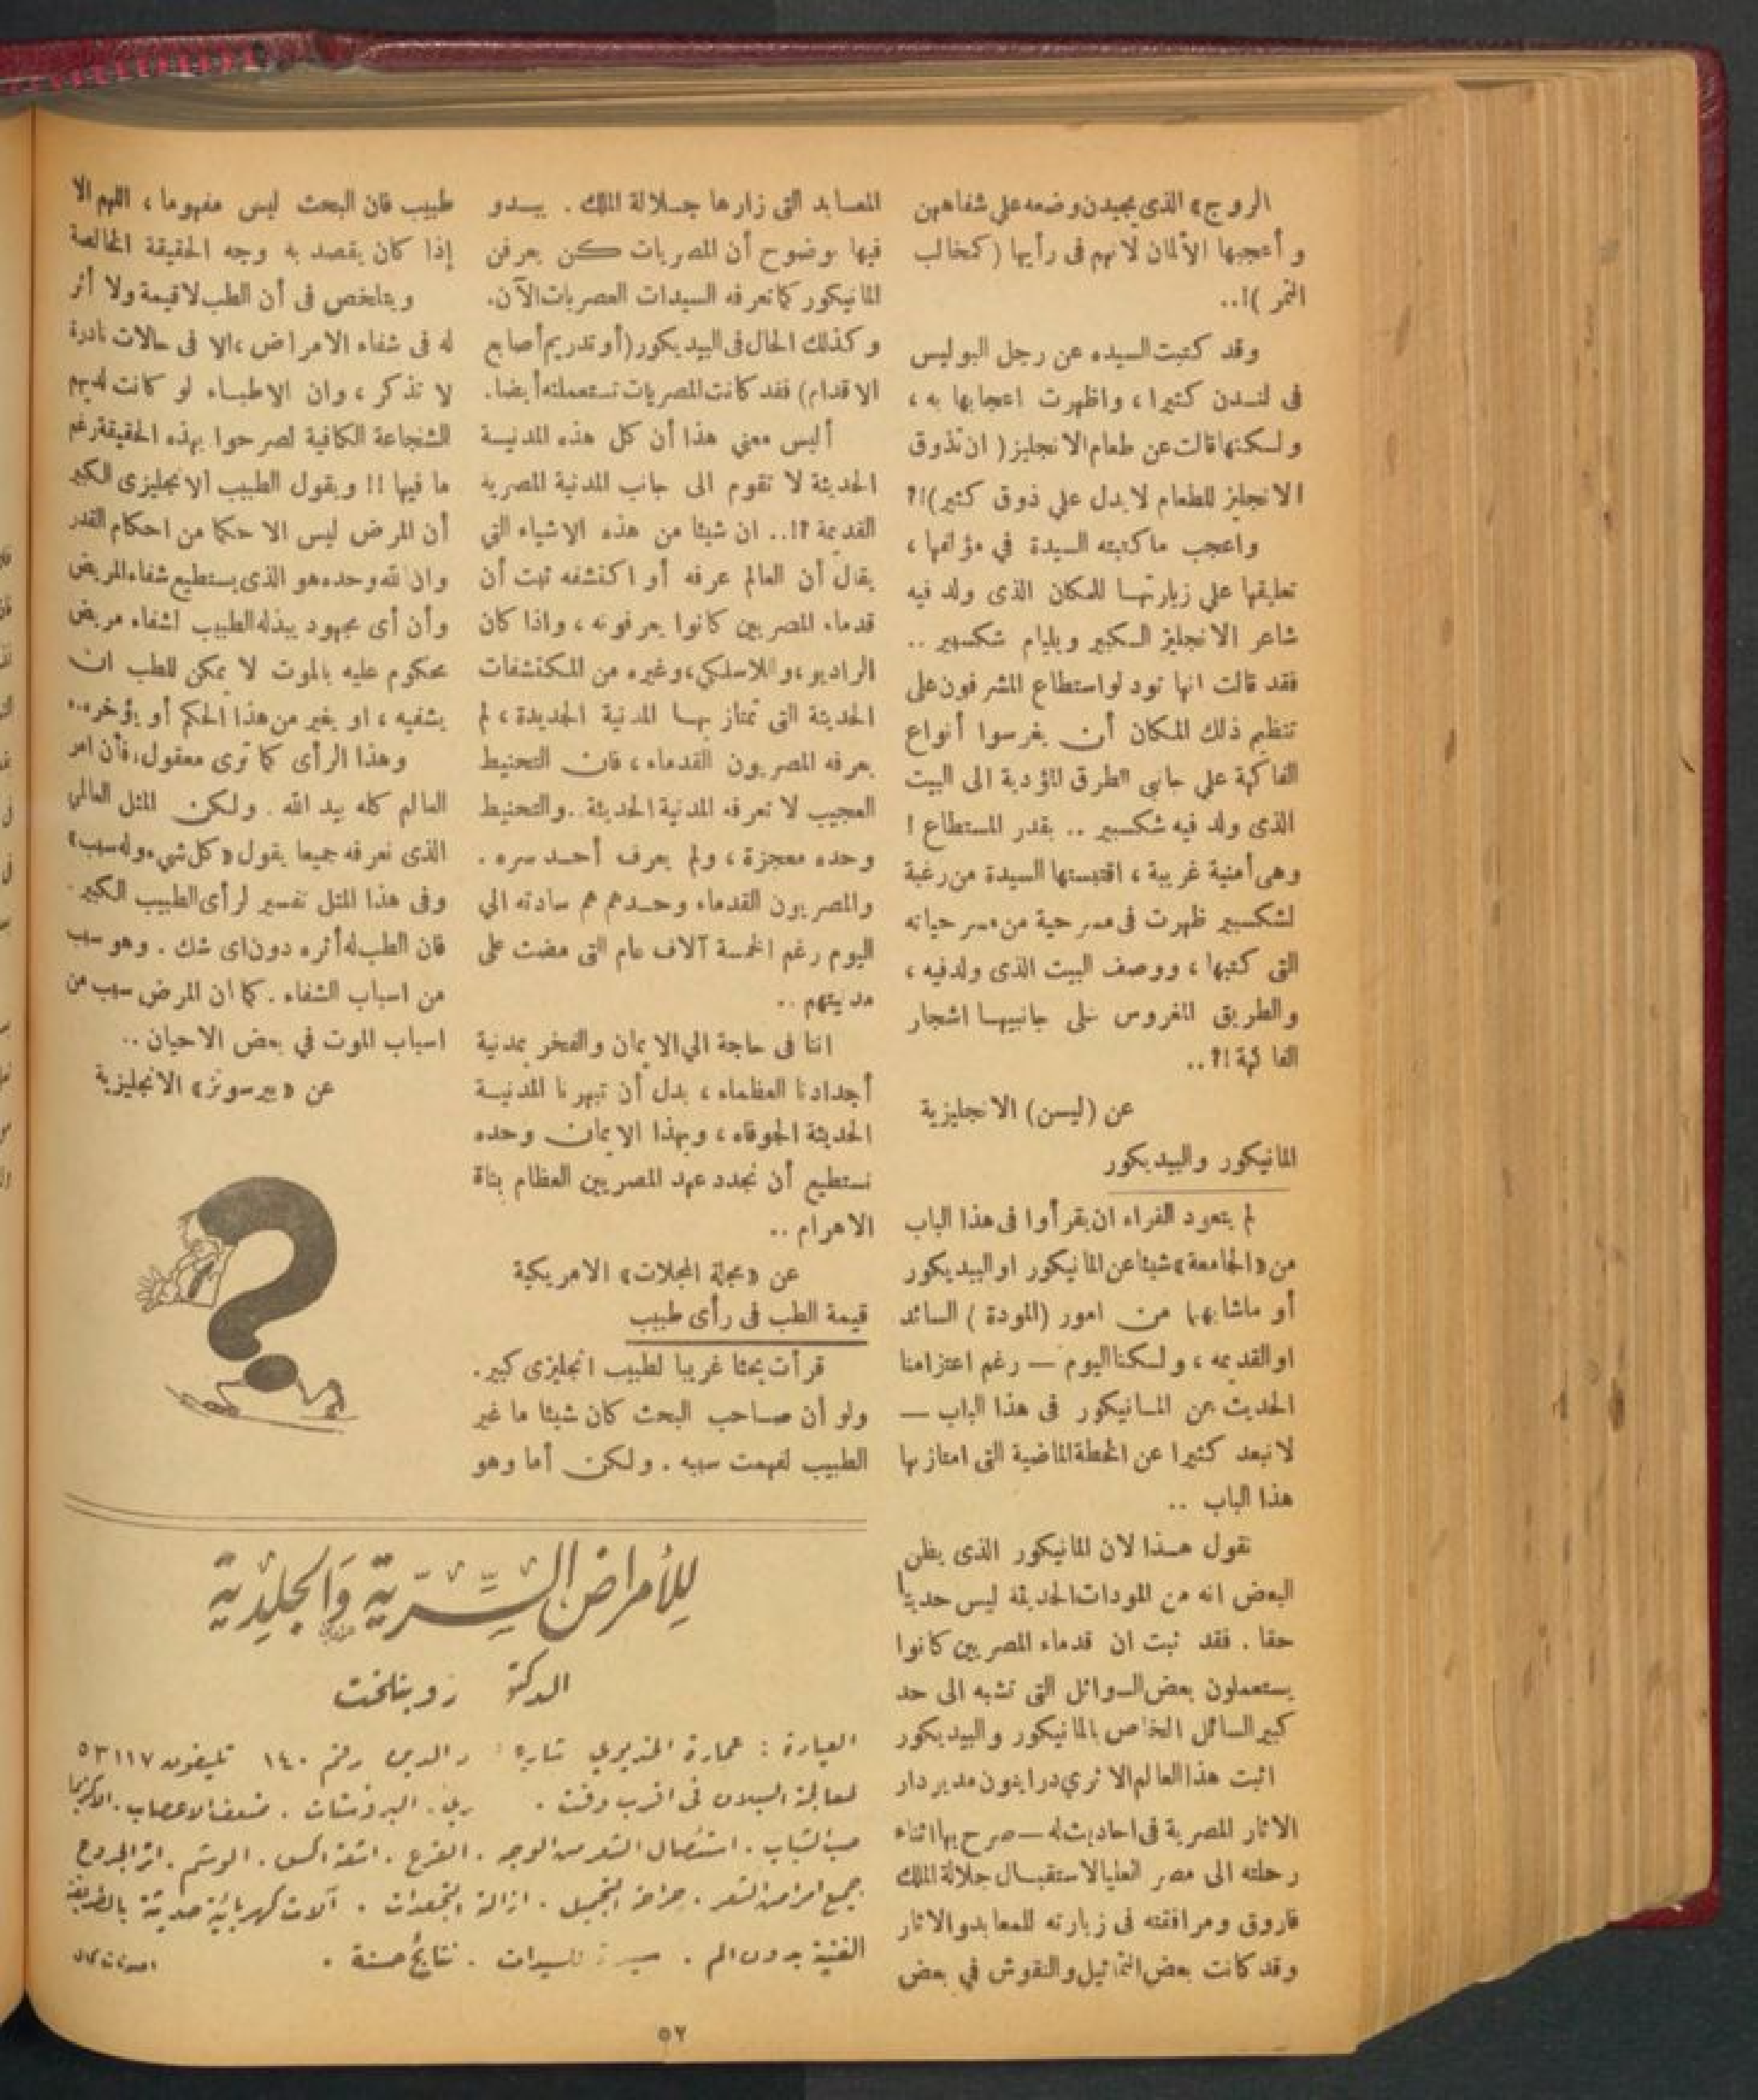 الروج» الذى يجيدن وضعه على شفاههن
و أعجبها الألمان لانهم فى رأيها (كمخالب
النمر )!..
وقد كتبت السيده عن رجل البوليس
فى لندن كثيرا ، واظهرت اعجابها به ،
ولكنها قالت عن طعام الانجليز ( ان تذوق
الانجليز للطعام لا يدل علي ذوق كثير)!؟
واعجب ماكتبته السيدة في مؤلفها ،
تعليقها علي زيارتها للمكان الذى ولد فيه
شاعر الانجليز الكبير ويليام شكسبير ..
فقد قالت انها تود لو استطاع المشرفون على
تنظيم ذلك المكان أن يغرسوا أنواع
الفاكهة علي جانبى الطرق المؤدية الى البيت
الذى ولد فيه شكسبير .. بقدر المستطاع !
وهى أمنية غريبة ، اقتبستها السيدة من رغبة
لشكسبير ظهرت فى مسرحية من مسرحياته
التى كتبها ، ووصف البيت الذى ولد فيه ،
والطريق المغروس على جانبيها اشجار
الفاكهة !؟ ..
عن (ليسن) الانجليزية
المانيكور والبيديكور
لم يتعود القراء ان يقرأوا فى هذا الباب
من «الجامعة» شيئا عن المانيكور او البيديكور
أو ماشابهها من امور (المودة ) السائد
او القديمه ، ولكنا اليوم — رغم اعتزامنا
الحديث عن المانيكور فى هذا الباب —
لا نبعد كثيرا عن الخطة الماضية التى امتاز بها
هذا الباب ..
نقول هذا لان المانيكور الذى يظن
البعض انه من المودات الحديثة ليس حديثا
حقا . فقد ثبت ان قدماء المصريين كانوا
يستعملون بعض السوائل التى تشبه الى حد
كبير السائل الخاص بالمانيكور والبيديكور
اثبت هذا العالم الاثري درايتون مدير دار
الاثار المصرية فى احاديث له — صرح بها اثناء
رحلته الى مصر العليا لاستقبال جلالة الملك
فاروق ومرافقته فى زيارته للمعابد والاثار
وقد كانت بعض التماثيل والنقوش في بعض
المعابد التى زارها جلالة الملك . يبدو
فيها بوضوح أن المصريات كن يعرفن
المانيكور كما تعرفه السيدات العصريات الآن.
وكذلك الحال فى البيديكور (أو تدريم أصابع
الاقدام) فقد كانت المصريات تستعملنه أيضا.
أليس معني هذا أن كل هذه المدنيسة
الحديثة لا تقوم الى جانب المدنية المصريه
القديمة ؟!.. ان شيئا من هذه الاشياء التي
يقال أن العالم عرفه أو اكتشفه ثبت أن
قدماء المصريين كانوا يعرفونه ، واذا كان
الراديو، واللاسلكي، وغيره من المكتشفات
الحديثة التى تمتاز بها المدنية الجديدة ، لم
يعرفه المصريون القدماء ، فان التحنيط
العجيب لا تعرفه المدنية الحديثة .. والتحنيط
وحده معجزة ، ولم يعرف أحد سره .
والمصريون القدماء وحدهم هم سادته الي
اليوم رغم الخمسة آلاف عام التى مضت على
مدنيتهم ..
اننا فى حاجة الي الايمان والفخر بمدنية
أجدادنا العظماء ، بدل أن تبهرنا المدنية
الحديثة الجوفاء ، وبهذا الايمان وحده
نستطيع أن نجدد عهد المصريين العظام بناة
الاهرام ..
عن «مجلة المجلات» الامريكية
قيمة الطب فى رأى طبيب
قرأت بحثا غريبا لطبيب انجليزى كبير .
ولو أن صاحب البحث كان شيئا ما غير
الطبيب لفهمت سببه . ولكن أما وهو
طبيب فان البحث ليس مفهوما ، اللهم الا
إذا كان يقصد به وجه الحقيقة الخالصة
ويتلخص فى أن الطب لاقيمة ولا أثر
له فى شفاء الامراض ، الا فى حالات نادرة
لا تذكر ، وان الاطباء لو كانت لديهم
الشجاعة الكافية لصرحوا بهذه الحقيقة رغم
ما فيها !! ويقول الطبيب الانجليزى الكبير
أن المرض ليس الا حكما من احكام القدر
وان الله وحده هو الذى يستطيع شفاء المريض
وأن أى مجهود يبذله الطبيب لشفاء مريض
محكوم عليه بالموت لا يمكن للطب ان
يشفيه ، او يغير من هذا الحكم أو يؤخره..
وهذا الرأى كما ترى معقول، فأن امر
العالم كله بيد الله . ولكن المثل العالى
الذى نعرفه جميعا يقول «كل شيء وله سبب»
وفى هذا المثل تفسير لرأى الطبيب الكبير.
فان الطب له أثره دون اى شك . وهو سبب
من اسباب الشفاء . كما ان المرض سبب من
اسباب الموت في بعض الاحيان ..
عن «بيرسونز» الانجليزية
للأمراض السرّية والجلدية
الدكتور روبنلخت
العيادة : عمارة الخديوي شارع عماد الدين رقم ١٤٠ تليفون ٥٣١١٧
لمعالجة السيلان فى اقرب وقت . البروستات . ضعف الاعصاب . الاكزيما
حب الشباب . استئصال الشعر من الوجه . القرع . اشعة اكس . الوشم . اثر الجروح
جميع امراض الشعر . جراحة التجميل . ازالة التجعدات . آلات كهربائية حديثة بالطريقة
الفنية بدون الم . للسيدات . نتائج حسنة .
٥٢